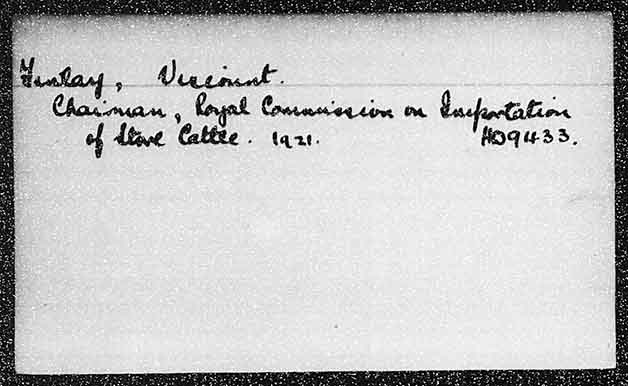 Finlay, Viscount.
Chairman, Royal Commission on Importation
of Store Cattle. 1921. HD9433.